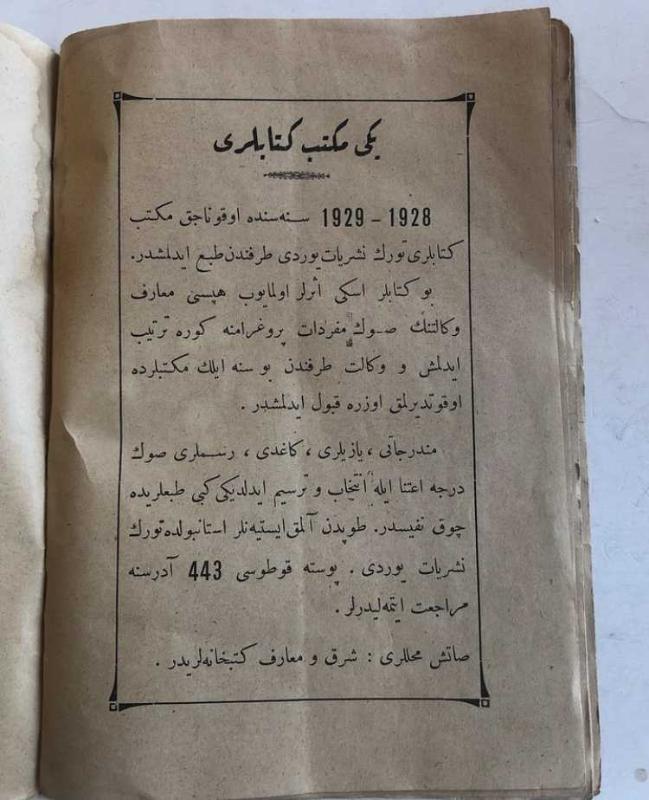 یكی مكتب كتابلری
1928 - 1929 سنه‌سنده اوقوناجق مكتب
كتابلری تورك نشریات یوردی طرفندن طبع ایدلمشدر.
بو كتابلر اسكی اثرلر اولمایوب هپسی معارف
وكالتنك صوك مفردات پروغرامنه كوره ترتیب
ایدلمش و وكالت طرفندن بو سنه ایلك مكتبلرده
اوقوتدیرلمق اوزره قبول ایدلمشدر .
مندرجاتی ، یازیلری ، كاغدی ، رسملری صوك
درجه اعتنا ایله انتخاب و ترسیم ایدلدیكی كبی طبعلریده
چوق نفیسدر. طوپدن آلمق ایستیه‌نلر استانبولده تورك
نشریات یوردی . پوسته قوطوسی 443 آدرسنه
مراجعت ایتمه‌لیدرلر .
صاتش محللری : شرق و معارف كتبخانه‌لریدر .